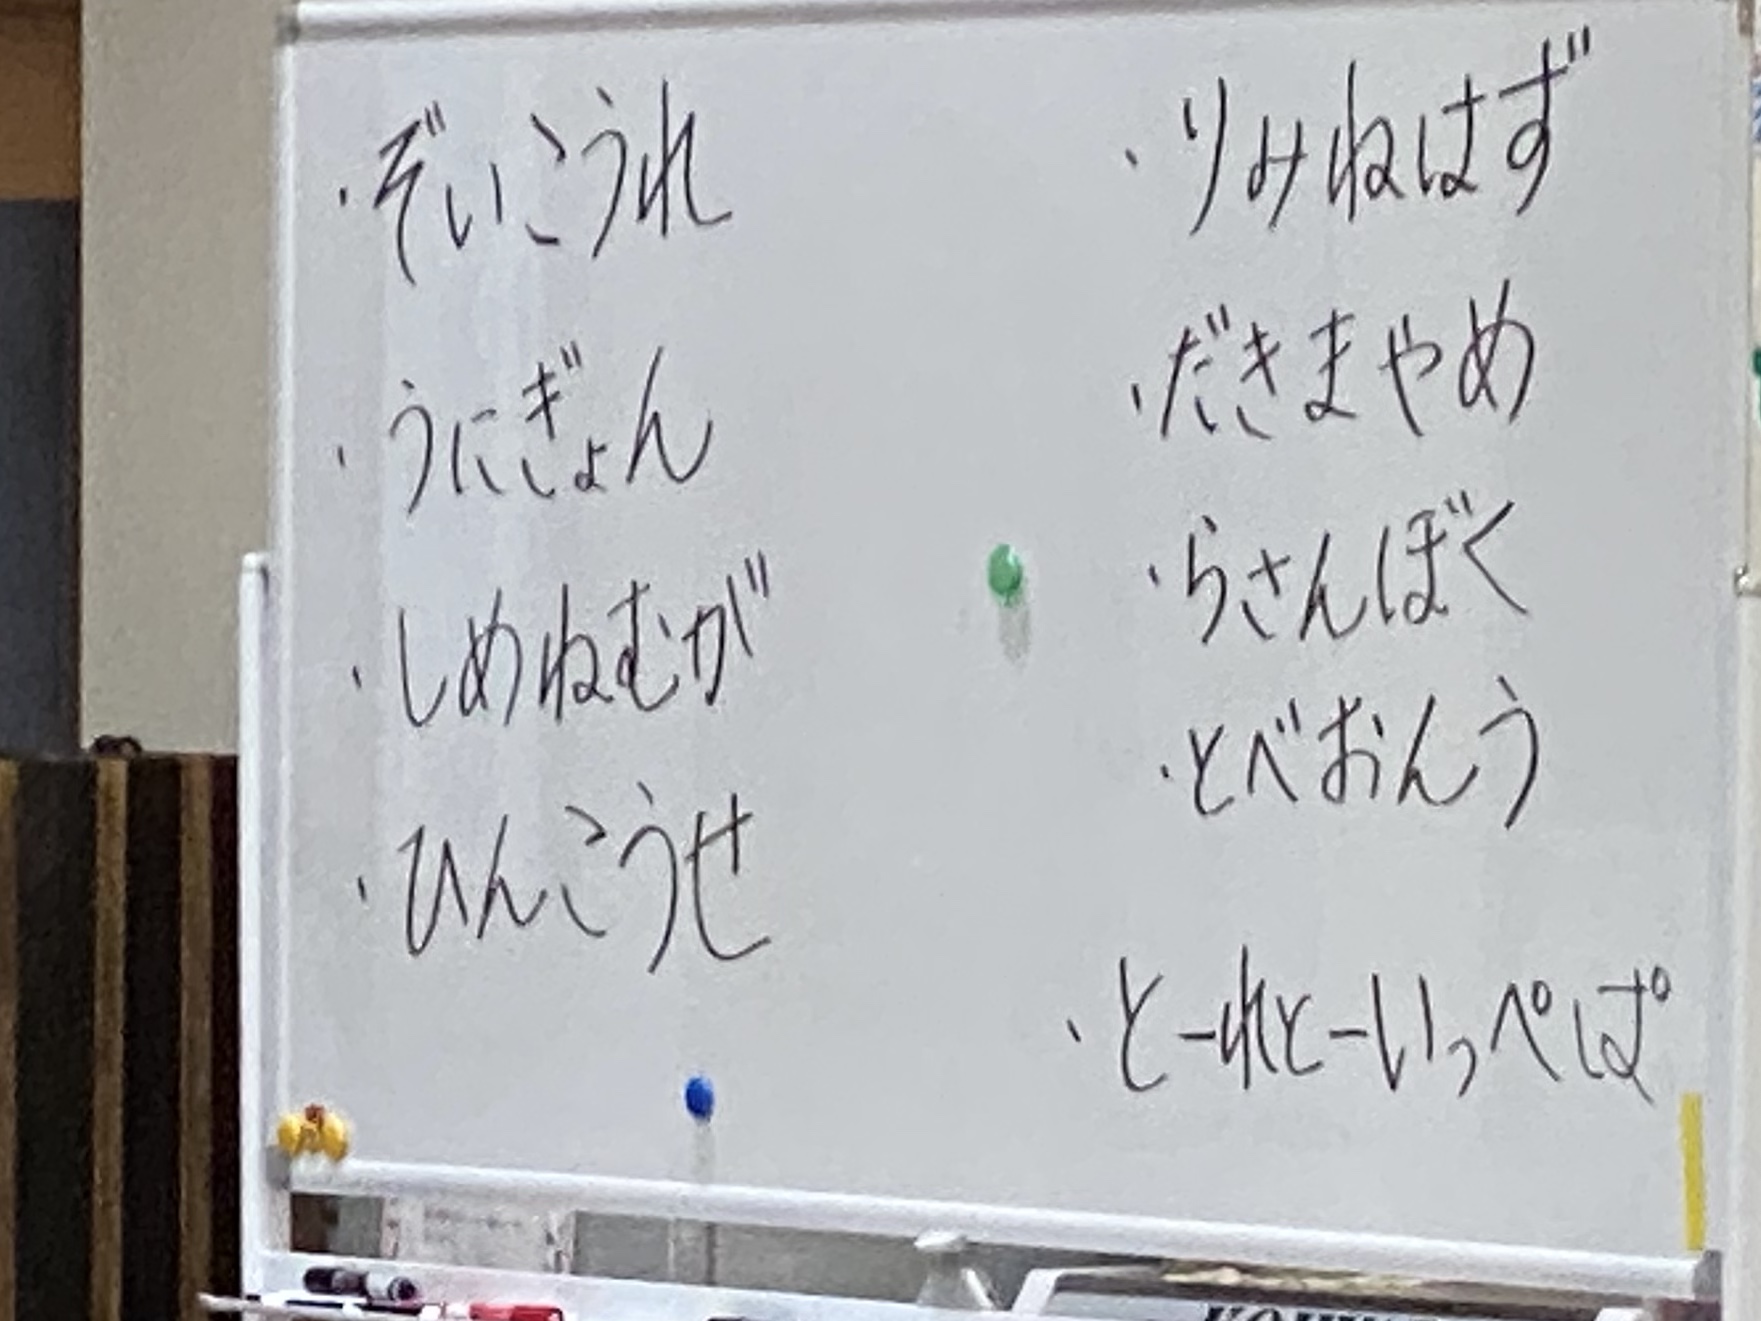 ・ぞいこうれ
・うにぎょん
・しめねむが
・ひんこうせ
・りみねはず
・だきまやめ
・らさんぼく
・とべおんう
・とーれとーいっぺぱ